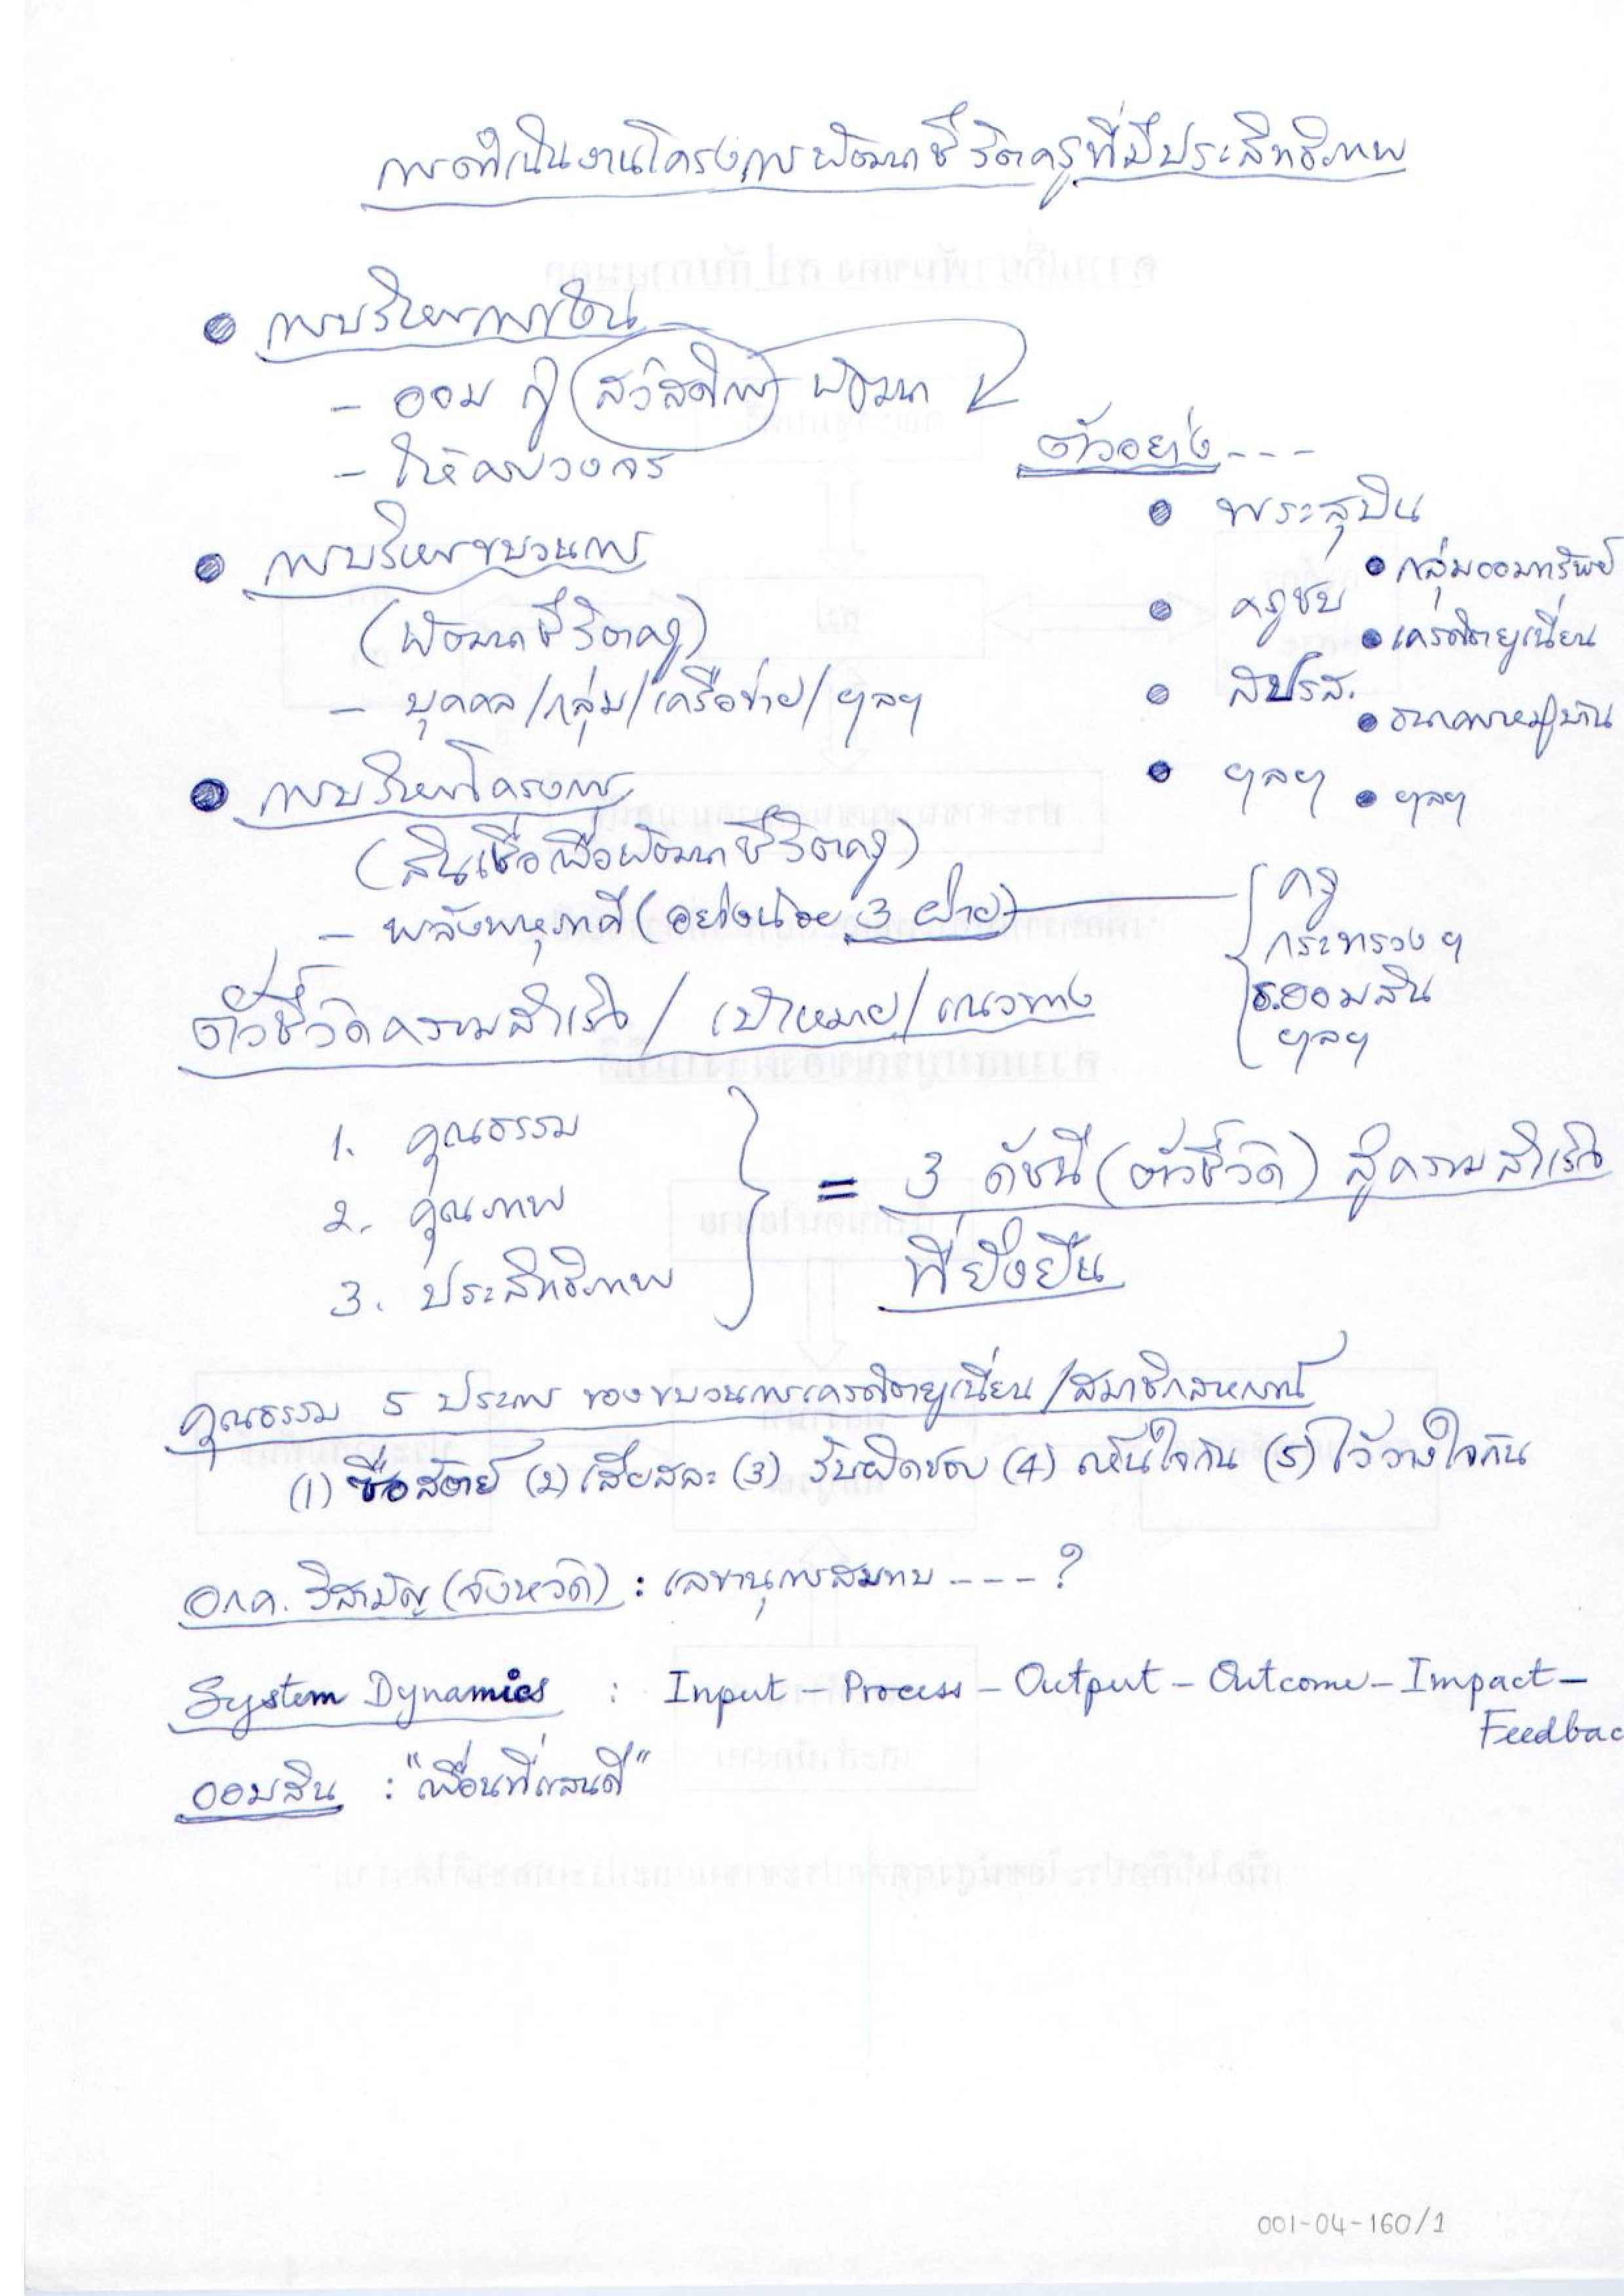 การดำเนินงานโครงการพัฒนาชีวิตครูที่มีประสิทธิภาพ
● การบริหารการเงิน
- ออม กู้ สวัสดิการ พัฒนา
- ให้ครบวงจร
ตัวอย่าง ---
● พระสุบิน
● กลุ่มออมทรัพย์
● ครูชบ
● เครดิตยูเนี่ยน
● สปรส.
● ธนาคารหมู่บ้าน
● ฯลฯ
● ฯลฯ
● การบริหารขบวนการ
(พัฒนาชีวิตครู)
- บุคคล/กลุ่ม/เครือข่าย/ฯลฯ
● การบริหารโครงการ
(สินเชื่อเพื่อพัฒนาชีวิตครู)
- พลังพหุภาคี (อย่างน้อย 3 ฝ่าย)
ครู
กระทรวงฯ
ธ.ออมสิน
ฯลฯ
ตัวชี้วัดความสำเร็จ / เป้าหมาย / แนวทาง
1. คุณธรรม
2. คุณภาพ
3. ประสิทธิภาพ
= 3 ดัชนี (ตัวชี้วัด) สู่ความสำเร็จ
ที่ยั่งยืน
คุณธรรม 5 ประการ ของขบวนการเครดิตยูเนี่ยน /สมาชิกสหกรณ์
(1) ซื่อสัตย์ (2) เสียสละ (3) รับผิดชอบ (4) เห็นใจกัน (5) ไว้วางใจกัน
อ.ก.ค. วิสามัญ (จังหวัด) : เลขานุการสมทบ ----?
System Dynamics : Input - Process - Output - Outcome - Impact -
Feedbac
ออมสิน : "เพื่อนที่แสนดี"
001-04-160/1